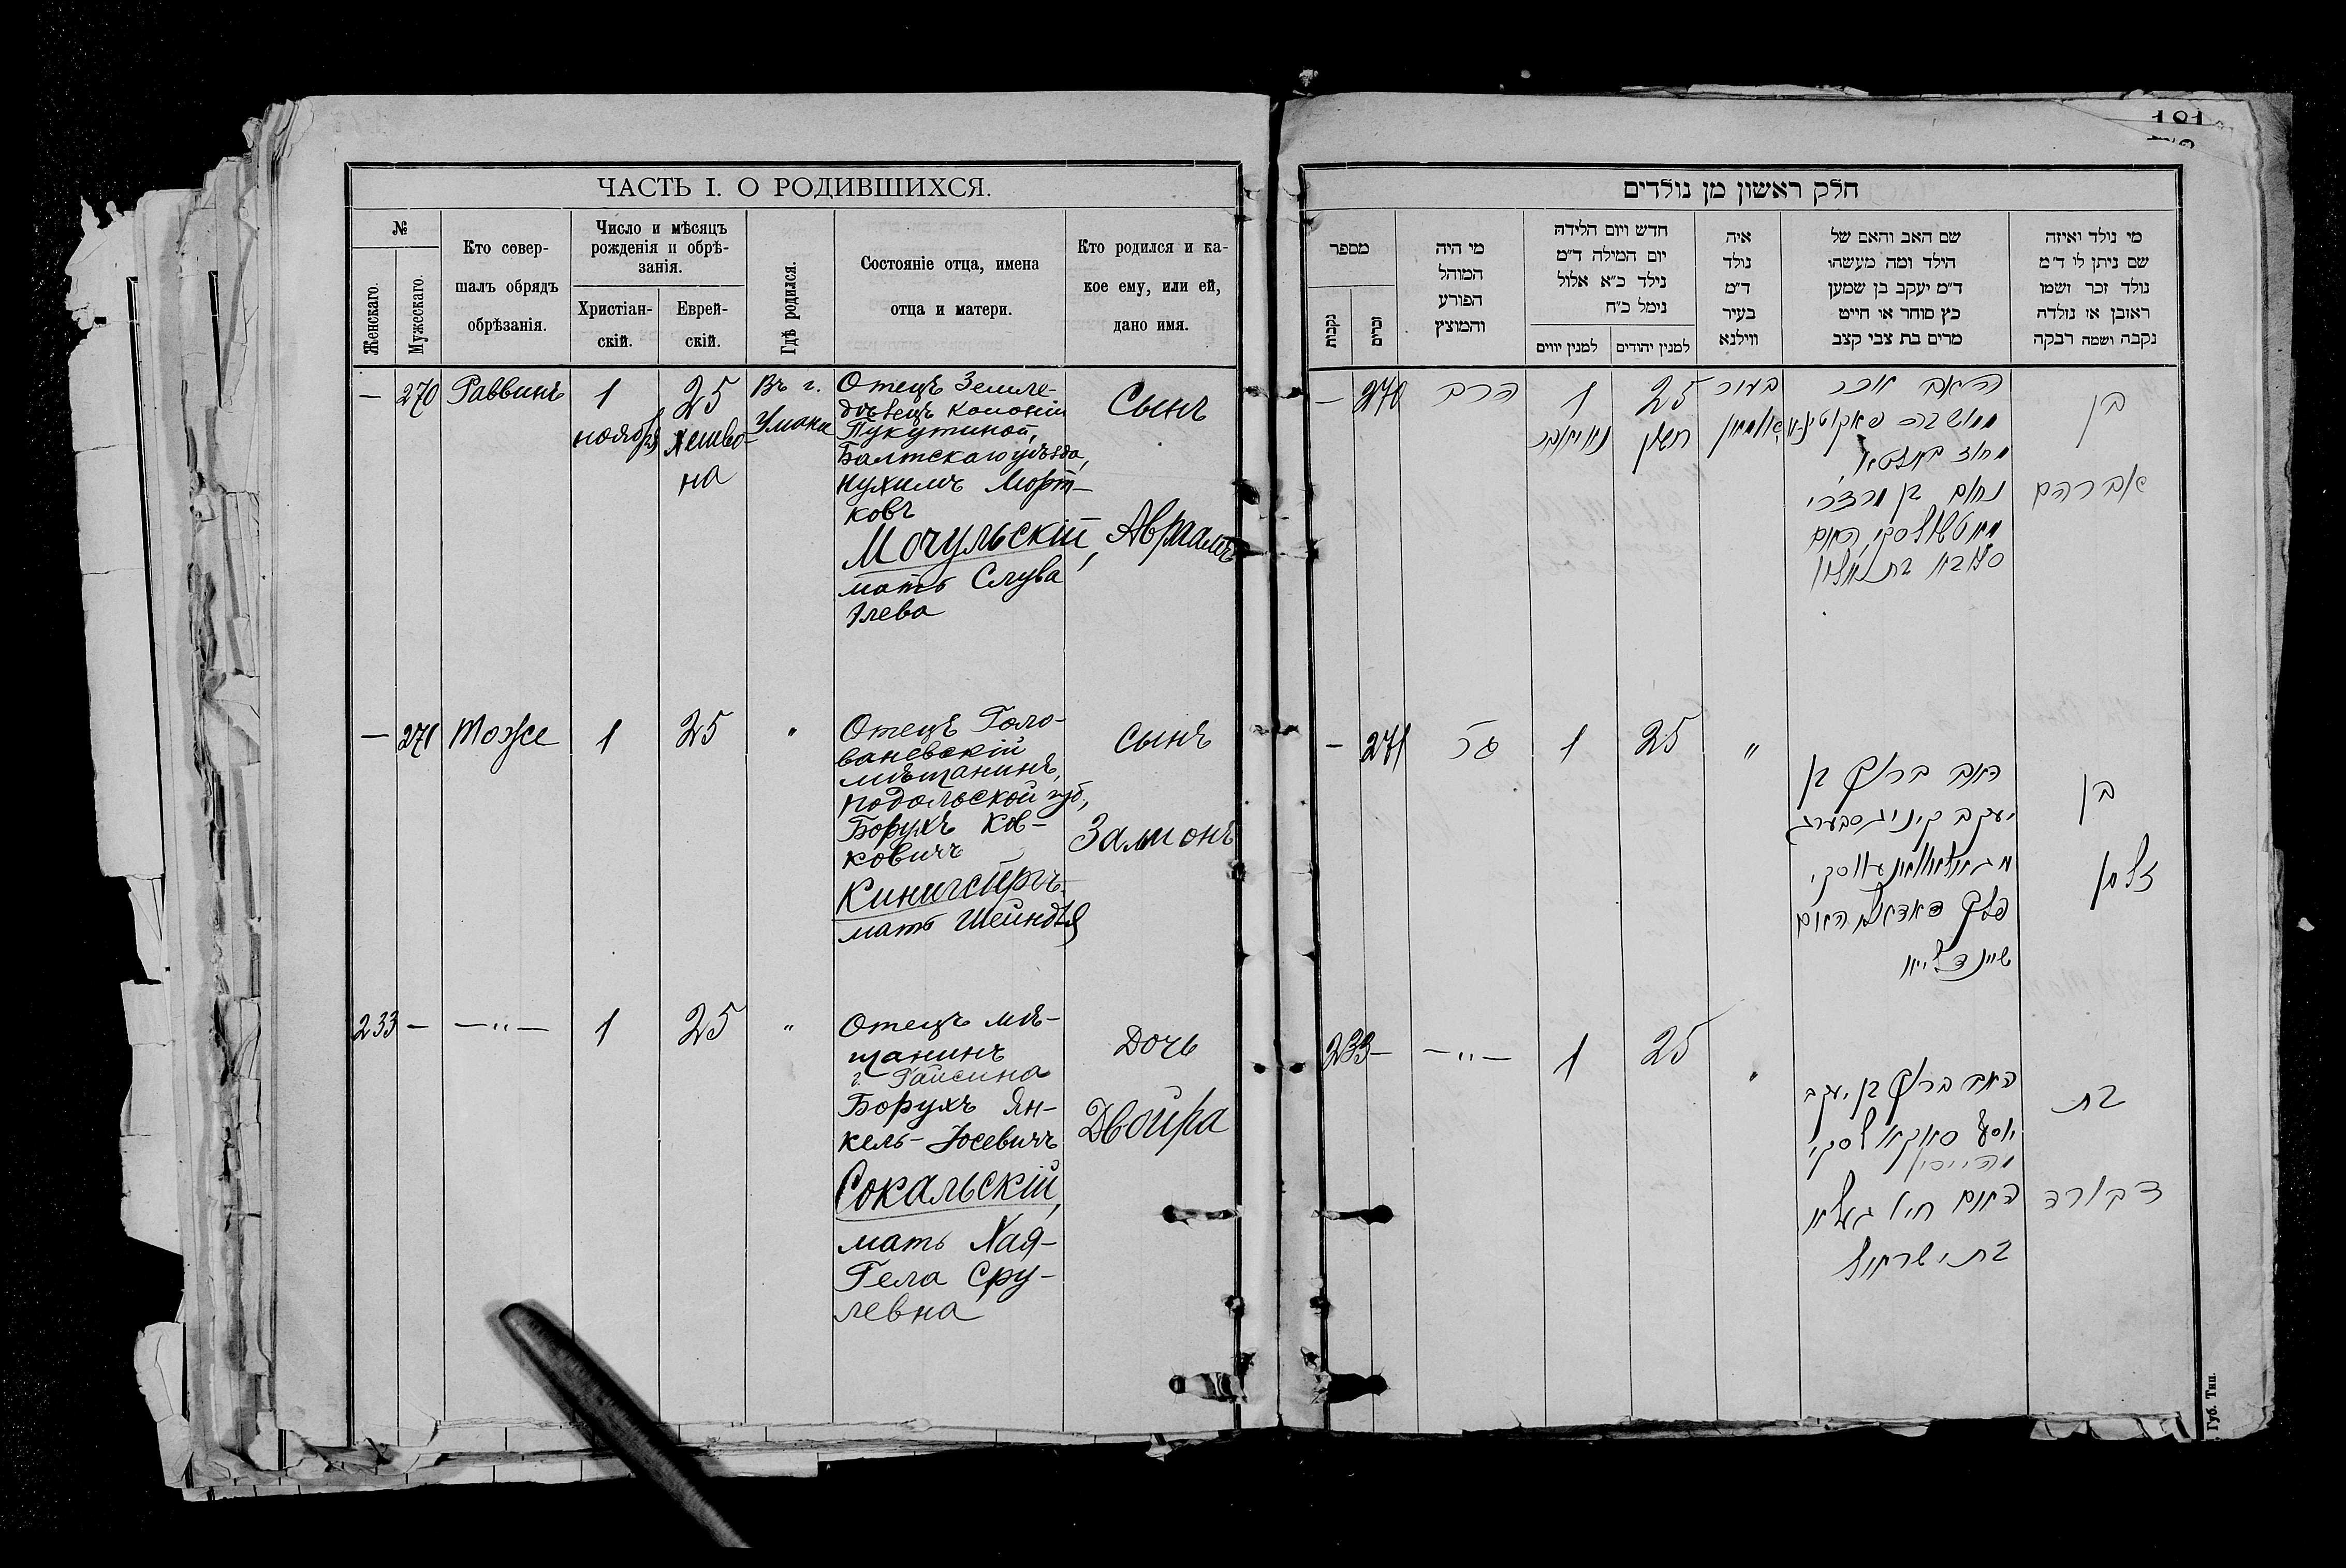 ЧАСТЬ I. О РОДИВШИХСЯ.
№
Женскаго.
Мужескаго
Кто совер-
шалъ обрядъ
обрѣзанія.
Число и мѣсяцъ
рожденія и обрѣ-
занія.
Христіан-
скій.
Еврей-
скій.
Гдѣ родился.
Состояніе отца, имена
отца и матери.
Кто родился и ка-
кое ему, или ей,
дано имя.
— 270 Раввинъ
1
ноября
25
Хешво-
на
Въ г.
Умани
Отецъ Земле-
дѣлецъ колоніи
Пукутиной,
Балтскаго уѣзда,
Нухимъ Морт-
ковъ
Мочульскій,
мать Слува
Сынъ
Авраамъ
— 271 Тоже 1 25 "
Отецъ Голо-
ваневскій
мѣщанинъ,
Подольской губ,
Борухъ
мать Шейндля
сынъ
Залмонъ
233 — —"— 1 25 "
Отецъ мѣ-
щанинъ
г. Гайсина
Борухъ Ян-
кель-Іосевичъ
Сокальскій,
мать Хая-
Гела Сру-
левна
Дочь
Двойра
181
חלק ראשון מן נולדים
מספר
נקבות
זכרים
מי היה
המוהל
הפורע
והמוצץ
חדש ויום הלידה
יום המילה ד״מ
נילד כ״א אלול
נימל כ״ח
למנין יווים
למנין יהודים
איה
נולד
ד״מ
בעיר
ווילנא
שם האב והאם של
הילד ומה מעשהו
ד״מ יעקב בן שמען
כץ סוחר או חייט
מרים בת צבי קצב
מי נולד ואיזה
שם ניתן לו ד״מ
נולד זכר ושמו
ראובן או נולדה
נקבה ושמה רבקה
— 270 הרב
1
25
חשון
האב
נחום בן מרדכי
בן
אברהם
— 271 1 25 "
האב ברוך בן
יעקב קיניגסבערג
בן
זלמן
233 — —"— 1 25 "
האב ברוך בן יעקב
יוסף סאקאלסקי
האם חיה געלא
בת ישראל
בת
דבורה
Губ. Тип.